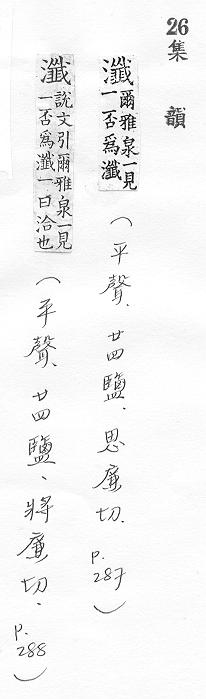 26集 韻
瀸爾雅泉一見一否爲瀸（平聲、廿四鹽、思廉切. p.287）
瀸說文引爾雅泉一見一否爲瀸一曰洽也（平聲、廿四鹽、將廉切、p.288）